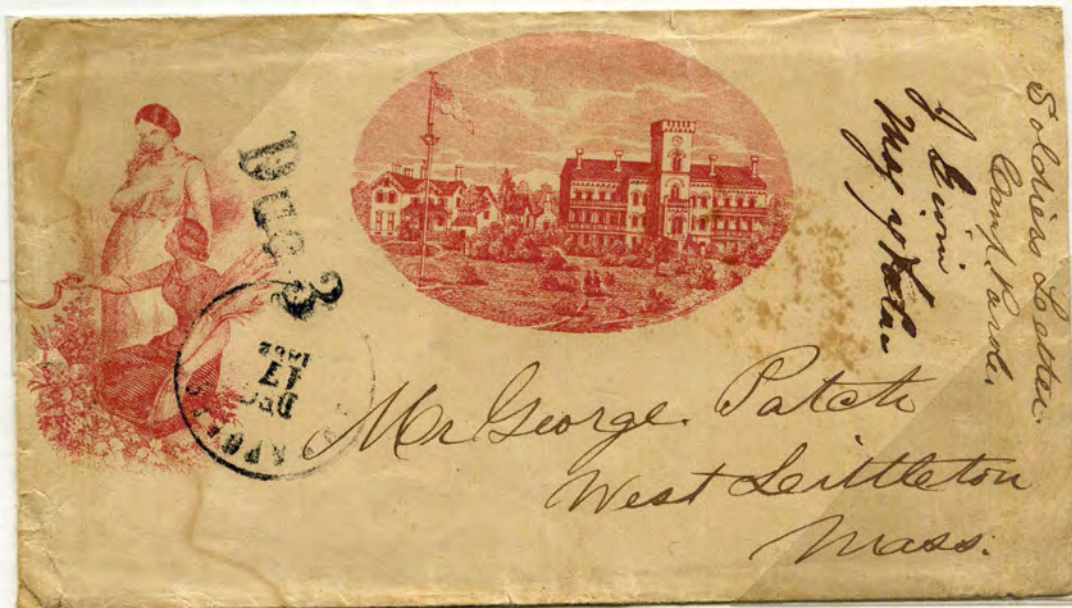 Soldiers Letter.
Camp
Maj
Due 3
DEC
17
1862
Mr George. Patch
West Littleton
Mass.